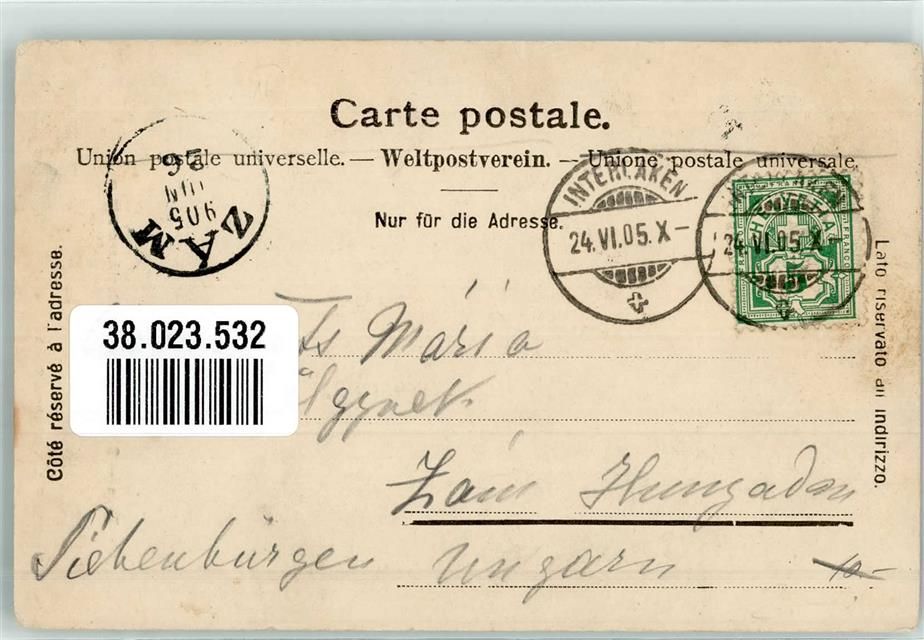 Carte postale.
Union postale universelle. — Weltpostverein. — Unione postale universale.
Nur für die Adresse.
ZÁM
905
JUN
26
INTERLAKEN
24.VI.05.X-
24.VI.05.X-
Côté réservé à l'adresse.
Lato riservato all indirizzo.
38.023.532
Mária
Zám Hunyadm
Siebenbürgen Ungarn
10-